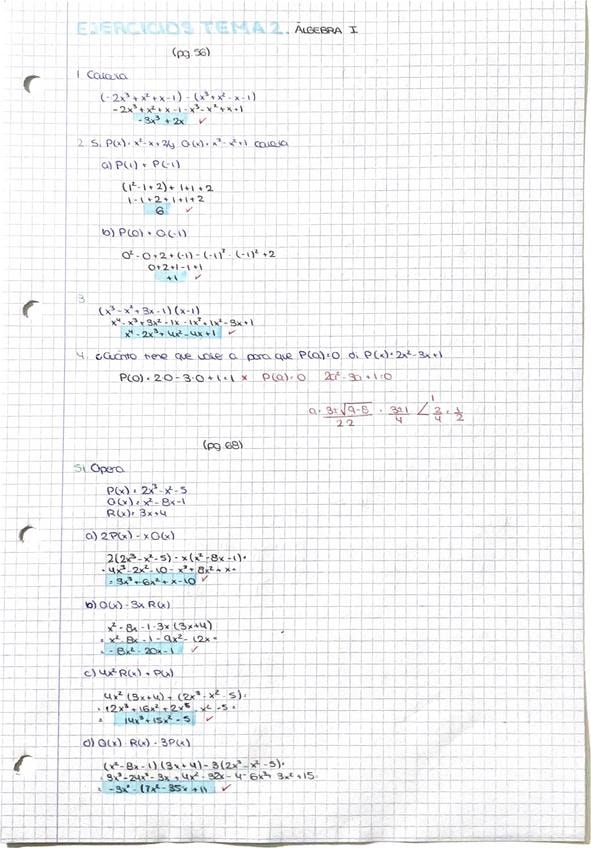 EJERCICIOS TEMA 2. ÁLGEBRA I
(pg 56)
1 Calcula
(-2x³ + x² + x - 1) - (x³ + x² - x - 1)
-2x³ + x² + x - 1 - x³ - x² + x + 1
-3x³ + 2x ✓
2. Si P(x) = x² - x + 2 y Q(x) = x³ - x² + 1 calcula
a) P(1) + P(-1)
(1² - 1 + 2) + 1 + 1 + 2
1 - 1 + 2 + 1 + 1 + 2
6 ✓
b) P(0) + Q(-1)
0 + 2 + 1 - 1 + 1
+1 ✓
3
(x³ - x² + 3x - 1)(x - 1)
x⁴ - 2x³ + 4x² - 4x + 1 ✓
4. ¿Cuánto tiene que valer a para que P(a) = 0 si P(x) = 2x² - 3x + 1
P(0) = 2·0 - 3·0 + 1 = 1 × P(a) = 0 2a² - 3a + 1 = 0
1
a = 3±√9-8 / 2·2 = 3±1 / 4 < 2/4 = 1/2
(pg 68)
51 Opera
P(x) = 2x³ - x² - 5
Q(x) = x² - 8x - 1
R(x) = 3x + 4
a) 2P(x) - xQ(x)
2(2x³ - x² - 5) - x(x² - 8x - 1) =
= 4x³ - 2x² - 10 - x³ + 8x² + x =
= 3x³ + 6x² + x - 10 ✓
b) Q(x) - 3x R(x)
x² - 8x - 1 - 3x (3x + 4)
= x² - 8x - 1 - 9x² - 12x =
= -8x² - 20x - 1 ✓
c) 4x² R(x) + P(x)
4x² (3x + 4) + (2x³ - x² - 5) =
= 12x³ + 16x² + 2x³ - x² - 5 =
= 14x³ + 15x² - 5 ✓
d) Q(x) · R(x) - 3P(x)
(x² - 8x - 1)(3x + 4) - 3(2x³ - x² - 5) =
= -3x³ - 17x² - 35x + 11 ✓